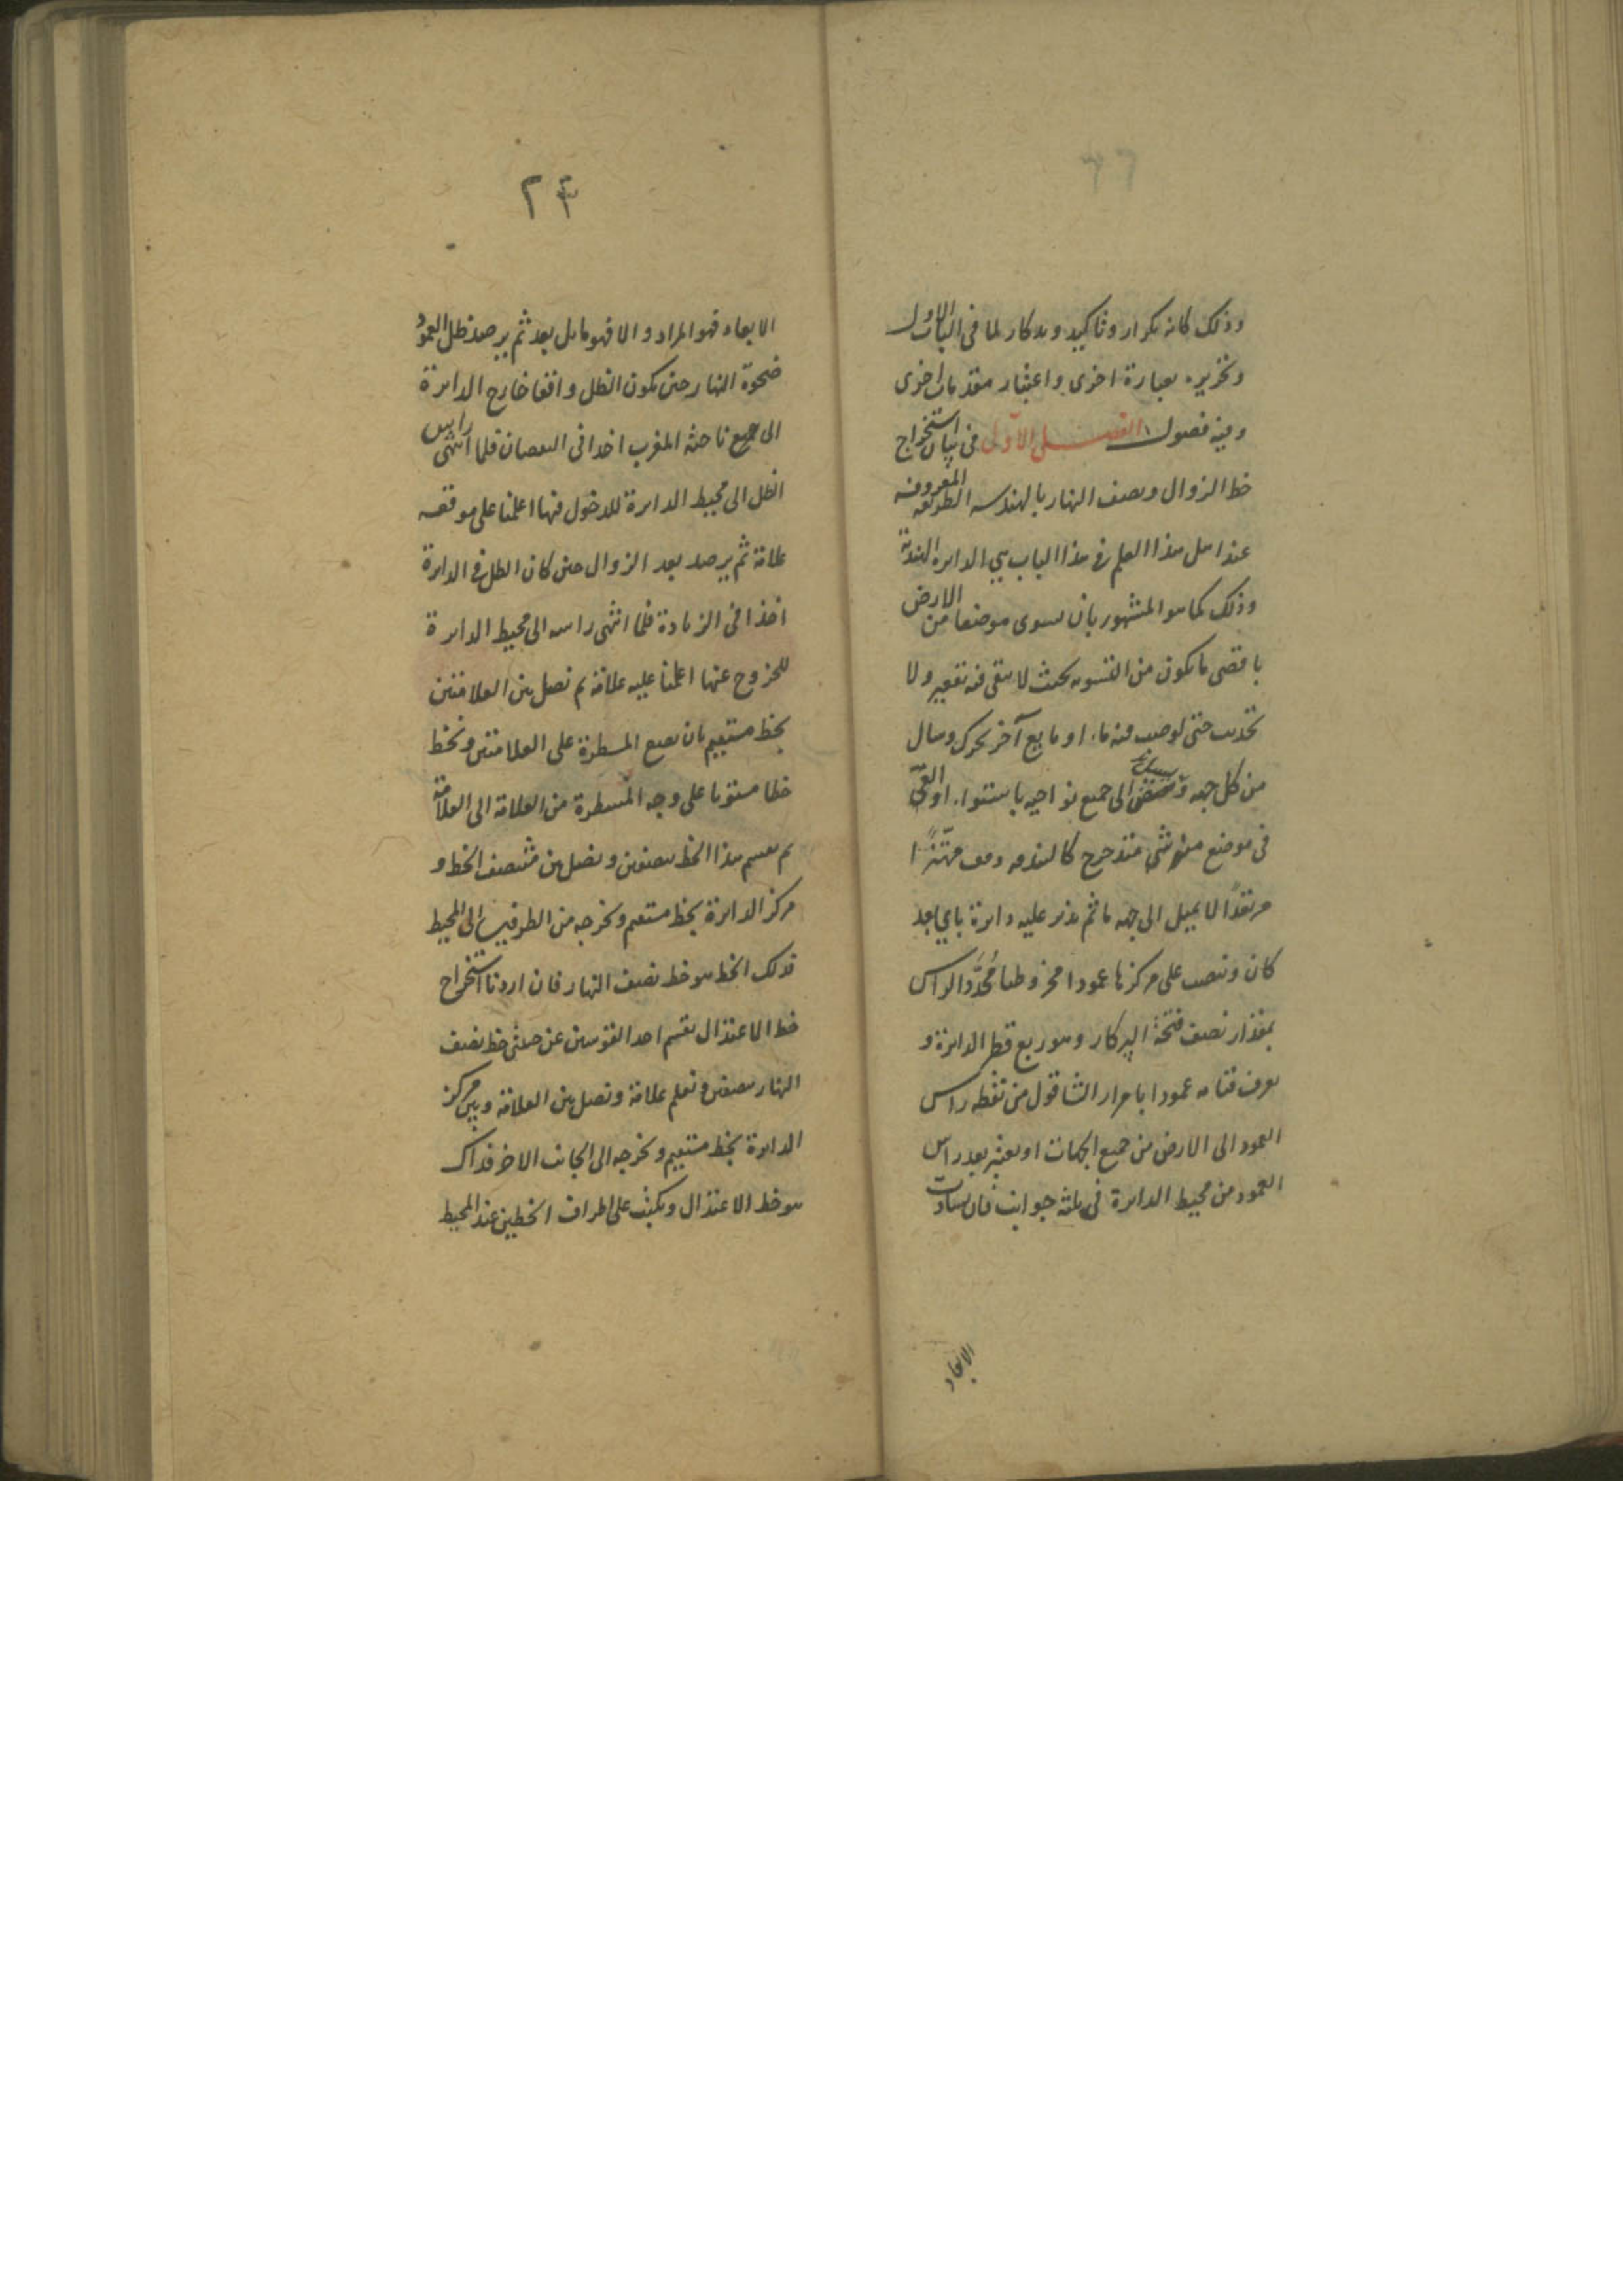 وذلك كانه تكرار وتاكيد وتذكار لما فى الباب الاول
وتحريره بعبارة اخرى واعتبار مقدمات اخرى
وفيه فصول الفصل الاول فى بيان استخراج
خط الزوال ونصف النهار بالهندسه الطريقه المعروفه
عند اهل هذا العلم فى هذا الباب هى الدايره الهندية
وذلك كما هو المشهور بان يسوى موضعا من الارض
باقصى ما يكون من التسويه بحيث لا يبقى فيه تقعير ولا
تحديب حتى لو صب فيه ماء او مايع آخر تحرك وسال
من كل جهه الى جميع نواحيه باستواء او القى
فى موضع منه شى متدحرج كالبندقه وقف مهتزا
مرتعدا لا يميل الى جهه ما ثم يدير عليه دايرة باى بعد
كان وينصب على مركزها عمودا مخروطا محدد الراس
بمقدار نصف فتحة البركار وهو ربع قطر الدايرة و
يعرف قيامه عمودا بامرار الشاقول من نقطه راس
العمود الى الارض من جميع الجهات او يعتبر بعد راس
العمود من محيط الدايرة فى ثلثه جوانب فان تساوت
الابعاد
٢٣
الابعاد فهو المراد والا فهو مايل بعد ثم يرصد ظل العمود
ضحوة النهار حين يكون الظل واقعا خارج الدايرة
الى ناحية المغرب اخذا فى النقصان فلما انتهى راس
الظل الى محيط الدايرة للدخول فيها اعلمنا على موقعه
علامة ثم يرصد بعد الزوال حين كان الظل فى الدايرة
اخذا فى الزيادة فلما انتهى راسه الى محيط الدايرة
للخروج عنها اعلمنا عليه علامة ثم نصل بين العلامتين
بخط مستقيم بان نضع المسطرة على العلامتين ونخط
خطا مستويا على وجه المسطرة من العلامة الى العلامة
ثم نقسم هذا الخط بنصفين ونصل بين منتصف الخط و
مركز الدايرة بخط مستقيم ونخرجه من الطرفين الى المحيط
فذلك الخط هو خط نصف النهار فان اردنا استخراج
خط الاعتدال نقسم احد القوسين عن جنبتى خط نصف
النهار بنصفين ونعلم علامة ونصل بين العلامة وبين مركز
الدايرة بخط مستقيم ونخرجه الى الجانب الاخر فذاك
هو خط الاعتدال ويكتب على اطراف الخطين عند المحيط